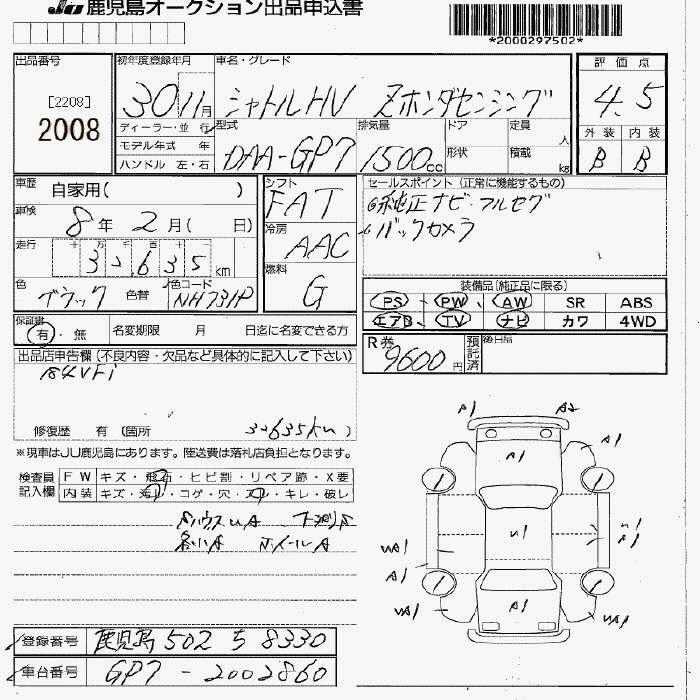 JU 鹿児島オークション出品申込書
*2000297502*
出品番号
[2208]
2008
初年度登録年月
30 11月
車名・グレード
シャトルHV Zホンダセンシング
評価点
4.5
外装 内装
B B
ディーラー・並 行
モデル年式 年
ハンドル 左・右
型式
DAA-GP7
排気量
1500cc
ドア
形状
定員 人
積載 kg
車歴
自家用( )
車検
8年 2月( 日)
走行 十 万 千 百 十
32,635km
色
ブラック
色替
色コード
NH731P
シフト
FAT
冷房
AAC
燃料
G
セールスポイント (正常に機能するもの)
純正ナビ・フルセグ
バックカメラ
装備品(純正品に限る)
PS PW AW SR ABS
エアB TV ナビ カワ 4WD
保証書
有・無
名変期限 月 日迄に名変できる方
R券
9600円
預託済
後日品
出品店申告欄(不良内容・欠品など具体的に記入して下さい)
修復歴 有(箇所 )
32635km
※現車はJU鹿児島にあります。陸送費は落札店負担となります。
検査員
記入欄
FW キズ・飛石・ヒビ割・リペア跡・X要
内装 キズ・汚レ・コゲ・穴・スレ・キレ・破レ
ホイールA
A1 A2
A1 A1
U1
A1
A1
A1
登録番号 鹿児島 502 ち 8330
車台番号 GP7-2002860